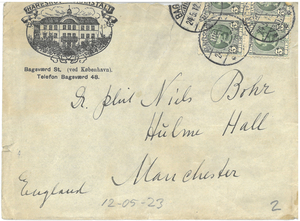 Bagsværd St. (ved København).
Telefon Bagsværd 48.
Niels Bohr
Hulme Hall
Manchester
England
12-05-23
2